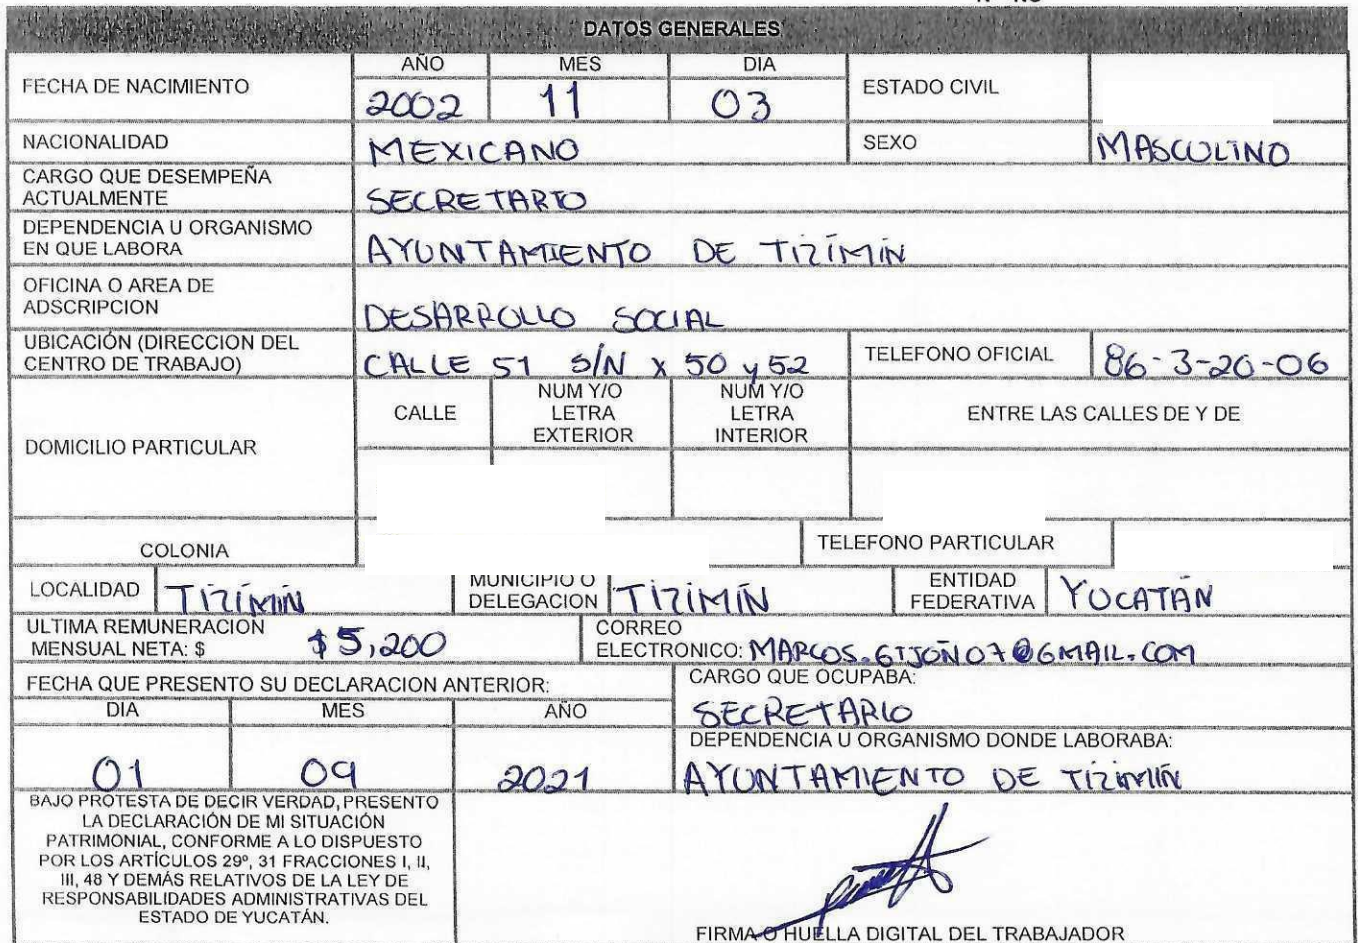 DATOS GENERALES
FECHA DE NACIMIENTO AÑO MES DIA ESTADO CIVIL
2002 11 03
NACIONALIDAD MEXICANO SEXO MASCULINO
CARGO QUE DESEMPEÑA
ACTUALMENTE SECRETARIO
DEPENDENCIA U ORGANISMO
EN QUE LABORA AYUNTAMIENTO DE TIZÍMÍN
OFICINA O AREA DE
ADSCRIPCION DESARROLLO SOCIAL
UBICACIÓN (DIRECCION DEL
CENTRO DE TRABAJO) CALLE 51 S/N x 50 y 52 TELEFONO OFICIAL 86-3-20-06
DOMICILIO PARTICULAR CALLE NUM Y/O
LETRA
EXTERIOR NUM Y/O
LETRA
INTERIOR ENTRE LAS CALLES DE Y DE
COLONIA TELEFONO PARTICULAR
LOCALIDAD TIZÍMÍN MUNICIPIO O
DELEGACION TIZÍMÍN ENTIDAD
FEDERATIVA YUCATÁN
ULTIMA REMUNERACION
MENSUAL NETA: $ $5,200 CORREO
ELECTRONICO: MARCOS.GIJOÑ07@GMAIL.COM
FECHA QUE PRESENTO SU DECLARACION ANTERIOR:
DIA MES AÑO
01 09 2021
CARGO QUE OCUPABA:
SECRETARIO
DEPENDENCIA U ORGANISMO DONDE LABORABA:
AYUNTAMIENTO DE TIZIMÍN
BAJO PROTESTA DE DECIR VERDAD, PRESENTO
LA DECLARACIÓN DE MI SITUACIÓN
PATRIMONIAL, CONFORME A LO DISPUESTO
POR LOS ARTÍCULOS 29º, 31 FRACCIONES I, II,
III, 48 Y DEMÁS RELATIVOS DE LA LEY DE
RESPONSABILIDADES ADMINISTRATIVAS DEL
ESTADO DE YUCATÁN.
FIRMA O HUELLA DIGITAL DEL TRABAJADOR